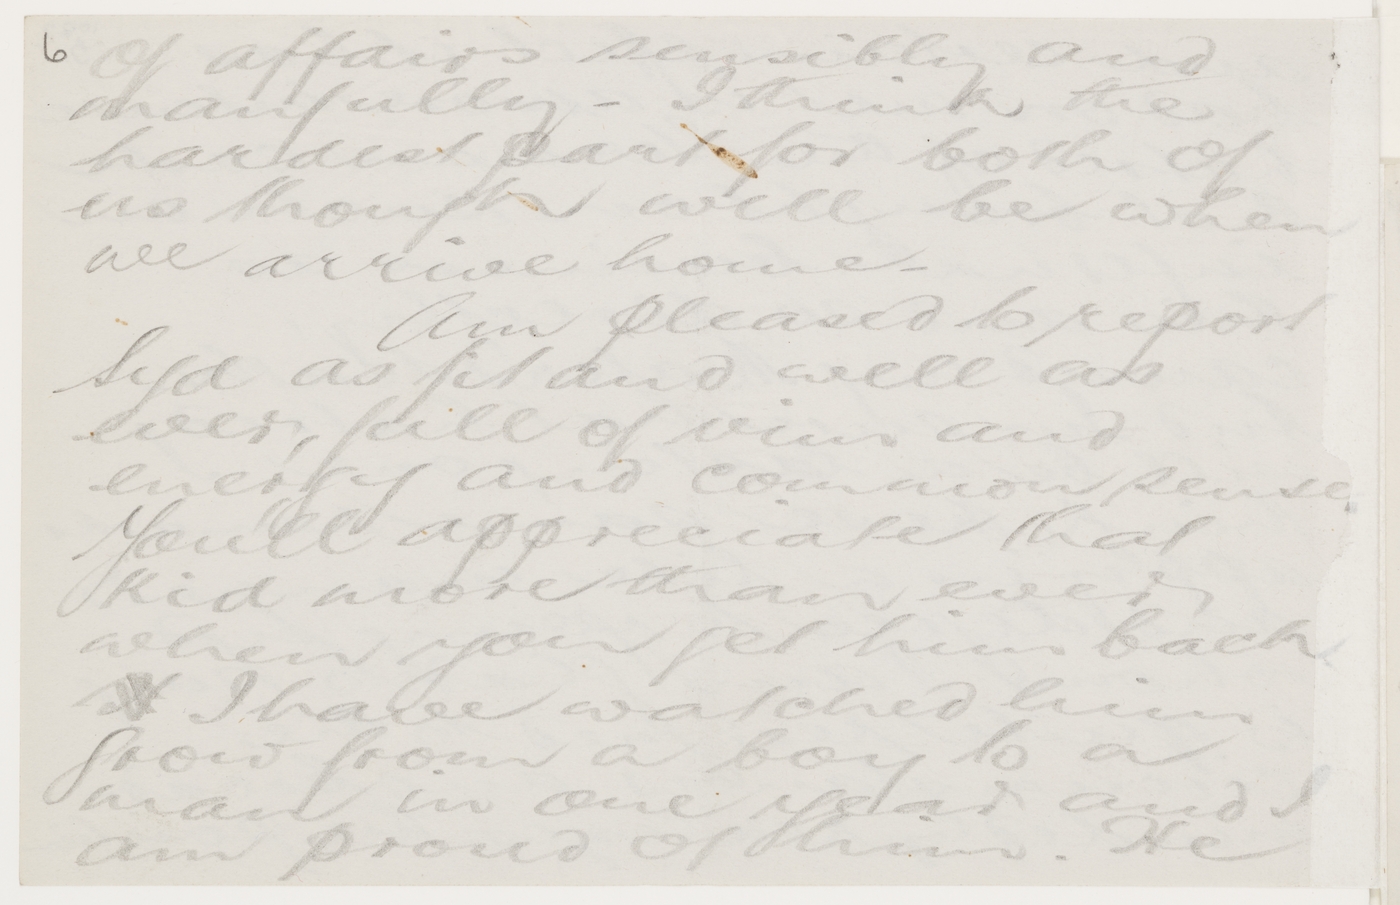 6
of affairs sensibly and
manfully - I think the
hardest part for both of
us though will be when
we arrive home -
Am pleased to report
Syd as fit and well as
ever, full of vim and
energy and common sense.
You'll appreciate that
kid more than ever
when you get him back
I have watched him
grow from a boy to a
man in one year and I
am proud of him. He